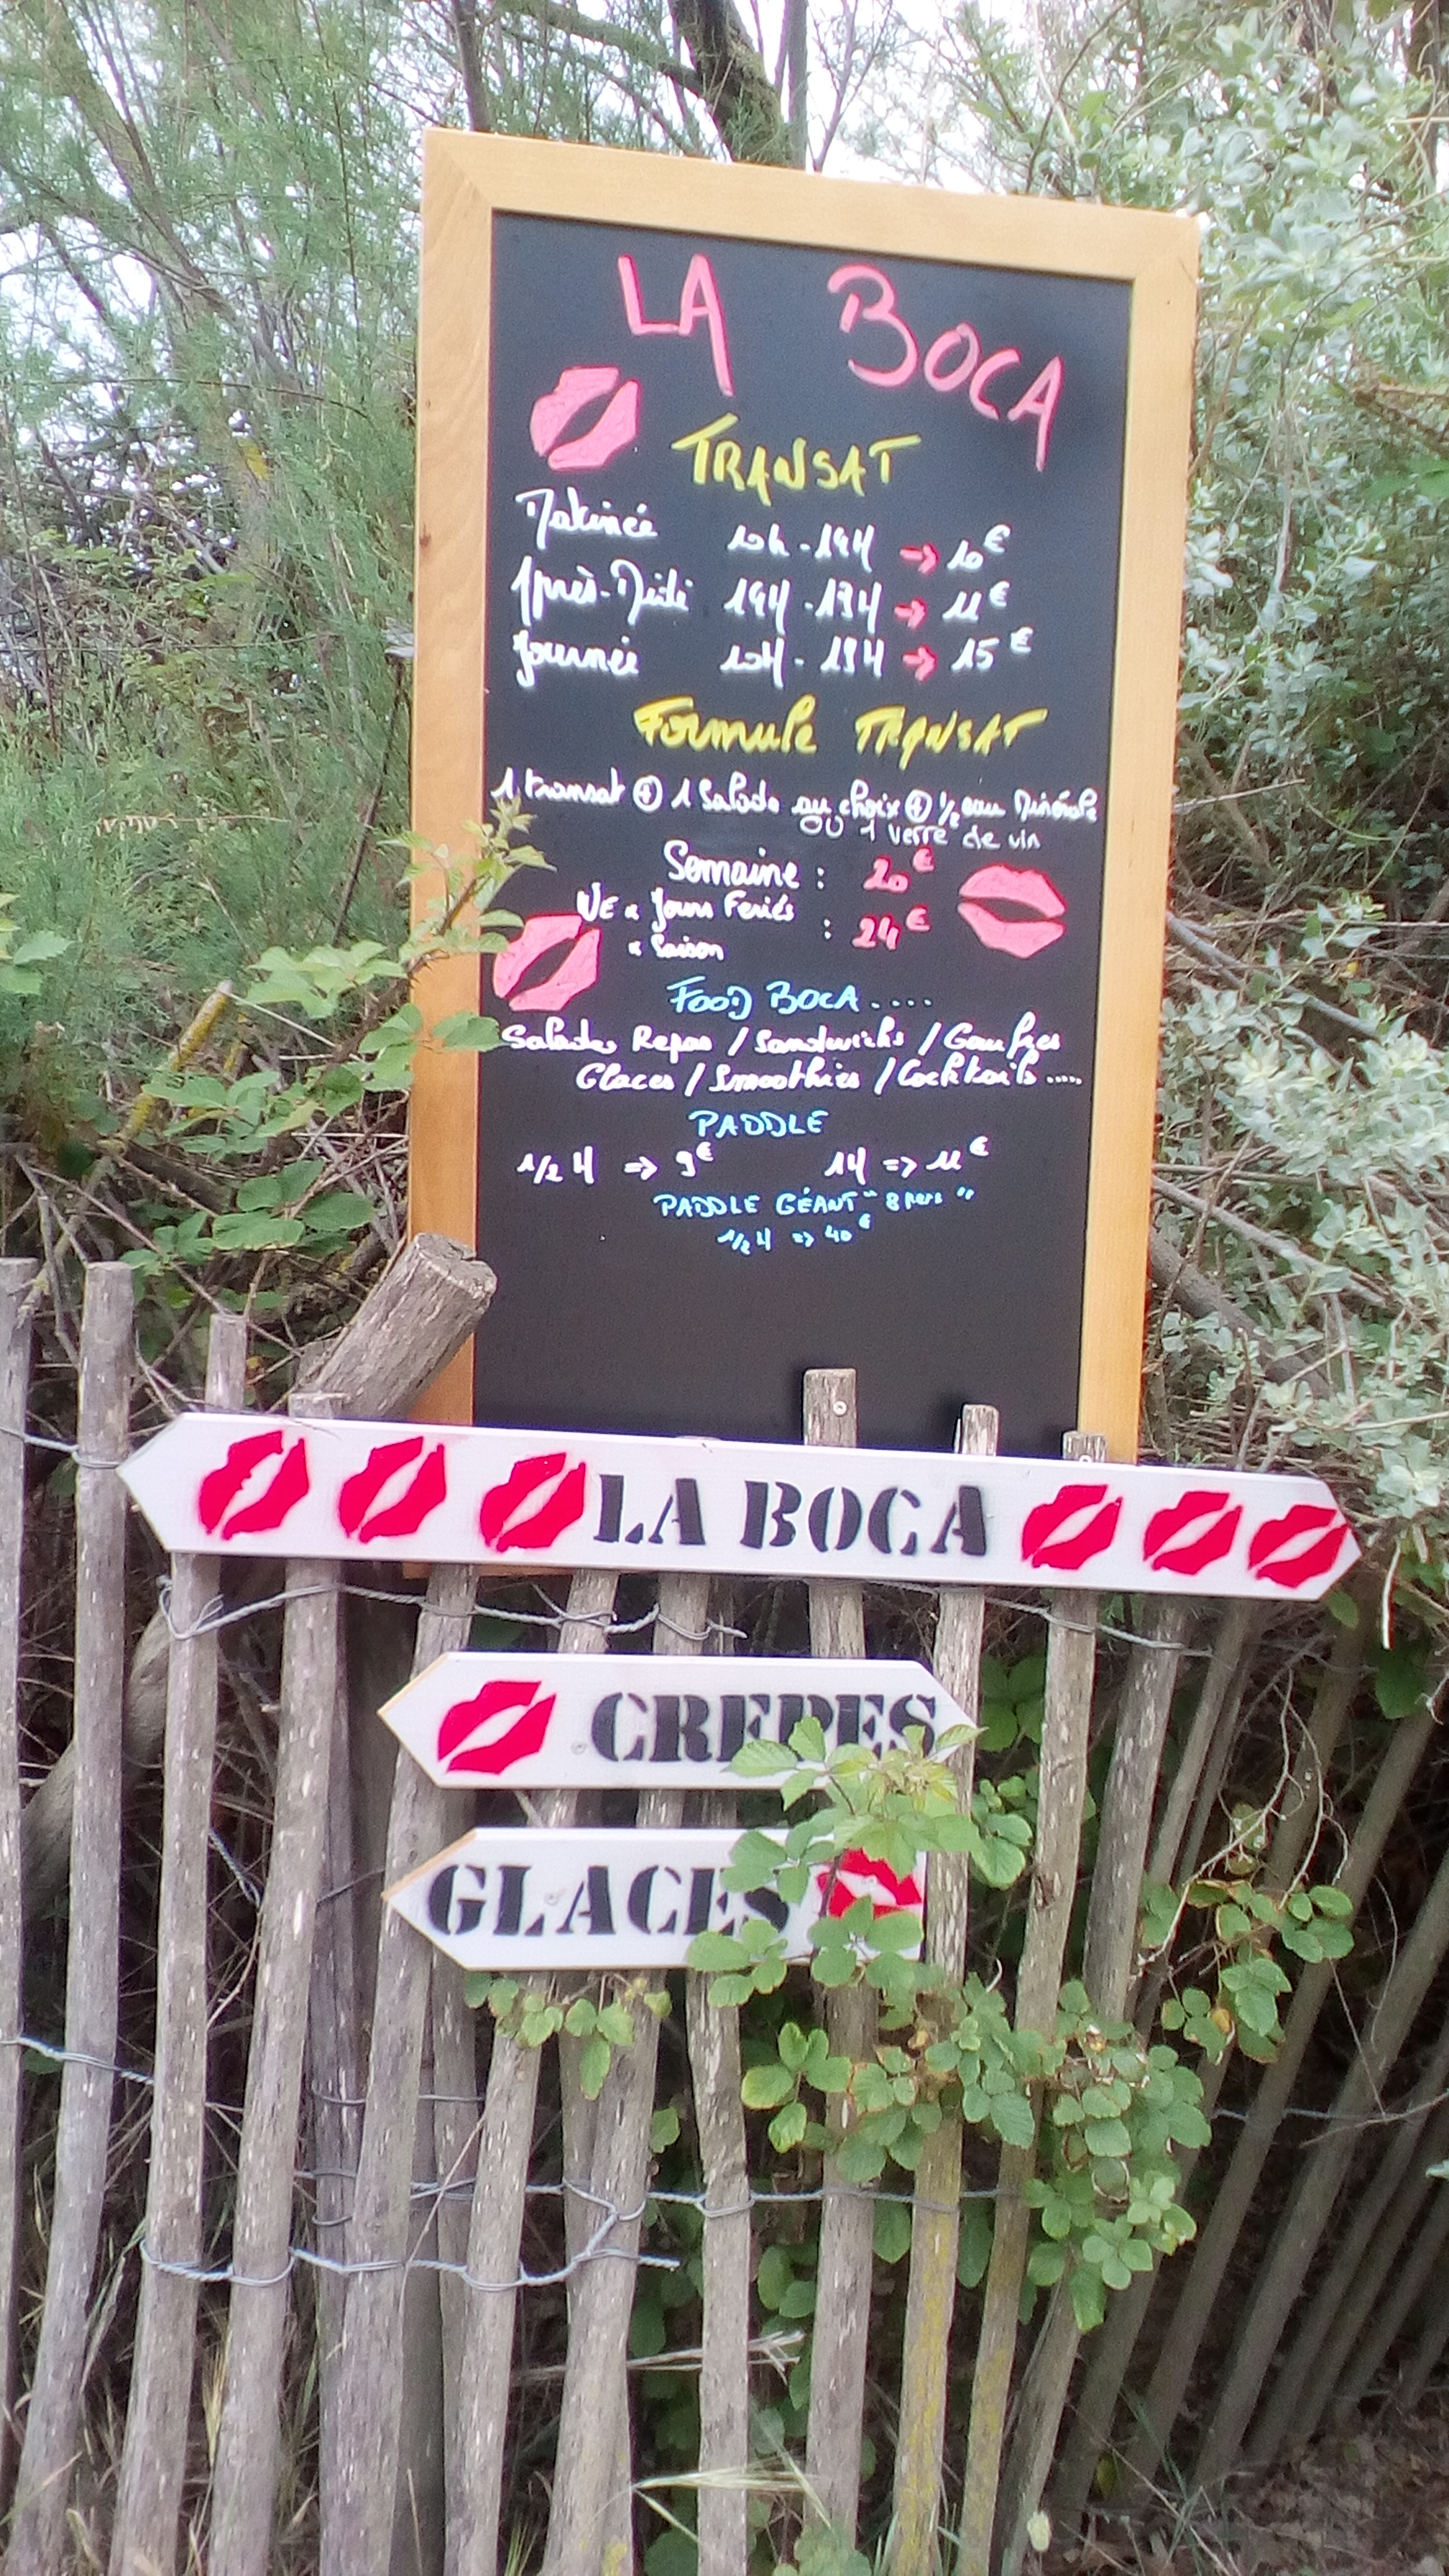 LA BOCA
TRANSAT
Matinée 10h - 14H → 10€
Après-Midi 14H - 19H → 11€
Journée 10H - 19H → 15€
Formule TRANSAT
1 transat ⊕ 1 Salade au choix ⊕ ½ eau Minérale
OU 1 verre de vin
Semaine : 20€
WE & Jours Feriés : 24€
& Saison
FOOD BOCA....
Salades Repas / Sandwichs / Gaufres
Glaces / Smoothies / Cocktails.....
PADDLE
1/2 H => 9€ 1H => 11€
PADDLE GÉANT "8 pers"
1/2 H => 40€
LA BOCA
CREPES
GLACES